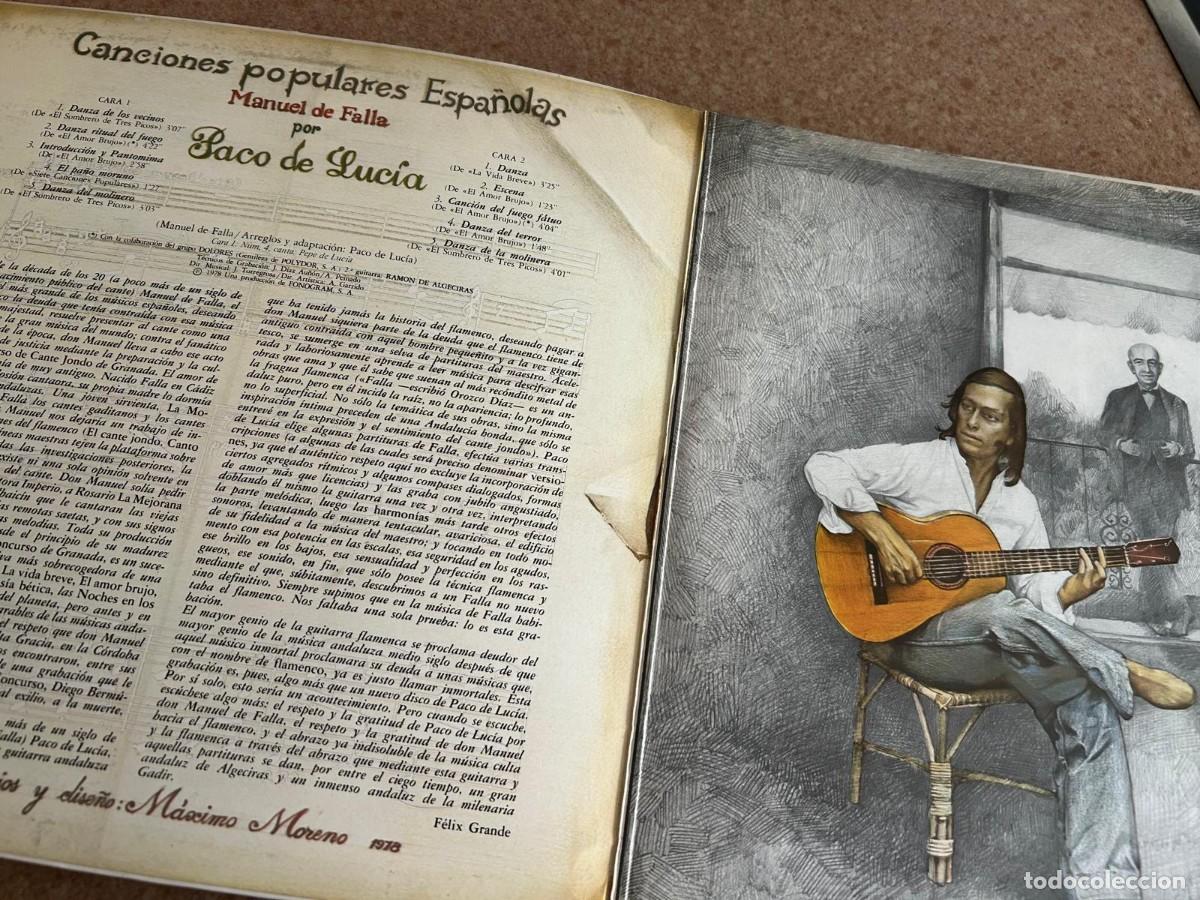 Canciones populares Españolas
Manuel de Falla
por
Paco de Lucía
CARA 1
1. Danza de los vecinos
(De «El Sombrero de Tres Picos») 3'07"
2. Danza ritual del fuego
(De «El Amor Brujo») (*) 4'22"
3. Introducción y Pantomima
(De «El Amor Brujo») 2'58"
4. El paño moruno
(De «Siete Canciones Populares») 1'27"
5. Danza del molinero
(De «El Sombrero de Tres Picos») 3'03"
CARA 2
1. Danza
(De «La Vida Breve») 3'25"
2. Escena
(De «El Amor Brujo») 1'23"
3. Canción del fuego fátuo
(De «El Amor Brujo») (*) 4'04"
4. Danza del terror
(De «El Amor Brujo») 1'48"
5. Danza de la molinera
(De «El Sombrero de Tres Picos») 4'01"
(Manuel de Falla / Arreglos y adaptación: Paco de Lucía)
Cara 1: Núm. 4, canta: Pepe de Lucía
(*) Con la colaboración del grupo DOLORES (Gentileza de POLYDOR, S. A.) 2.ª guitarra: RAMON DE ALGECIRAS
Técnicos de Grabación: J. Díaz Auñón/ A. Peinado
Dir. Musical: J. Torregrosa/ Dir. Artística: A. Garrido
© 1978 Una producción de FONOGRAM, S. A.
la década de los 20 (a poco más de un siglo de
nacimiento público del cante) Manuel de Falla, el
más grande de los músicos españoles, deseando
la deuda que tenía contraída con esa música
majestad, resuelve presentar al cante como una
la gran música del mundo; contra el fanático
de la época, don Manuel lleva a cabo ese acto
de justicia mediante la preparación y la cul-
so de Cante Jondo de Granada. El amor de
de muy antiguo. Nacido Falla en Cádiz
cantaora, su propia madre lo dormía
andaluzas. Una joven sirvienta, La Mo-
Falla los cantes gaditanos y los cantes
Manuel nos dejaría un trabajo de in-
nes del flamenco (El cante jondo, Canto
líneas maestras tejen la plataforma sobre
las investigaciones posteriores, la
existe ni una sola opinión solvente en
del cante. Don Manuel solía pedir
Imperio, a Rosario La Mejorana
que le cantaran las viejas
remotas saetas, y con sus signos
melodías. Toda su producción
desde el principio de su madurez
concurso de Granada, es un suce-
más sobrecogedora de una
La vida breve, El amor brujo,
bética, las Noches en los
del planeta, pero antes y en
de las músicas anda-
el respeto que don Manuel
Gracia, en la Córdoba
encontraron, entre sus
de una grabación que le
concurso, Diego Bermú-
al exilio, a la muerte.
más de un siglo de
Falla) Paco de Lucía,
guitarra andaluza
que ha tenido jamás la historia del flamenco, deseando pagar a
don Manuel siquiera parte de la deuda que el flamenco tiene de
antiguo contraída con aquel hombre pequeñito y a la vez gigan-
tesco, se sumerge en una selva de partituras del maestro. Acele-
rada y laboriosamente aprende a leer música para descifrar esas
obras que ama y que él sabe que suenan al más recóndito metal de
la fragua flamenca («Falla —escribió Orozco Díaz— es un an-
daluz puro, pero en él incide la raíz, no la apariencia; lo profundo,
no lo superficial. No sólo la temática de sus obras, sino la misma
inspiración íntima preceden de una Andalucía honda, que sólo se
entrevé en la expresión y el sentimiento del cante jondo»). Paco
de Lucía elige algunas partituras de Falla, efectúa varias trans-
cripciones (a algunas de las cuales será preciso denominar versio-
nes, ya que el auténtico respeto aquí no excluye la incorporación de
ciertos agregados rítmicos y algunos compases dialogados, formas
de amor más que licencias) y las graba con júbilo angustiado,
doblando él mismo la guitarra una vez y otra vez, interpretando
la parte melódica, luego las harmonías más tarde otros efectos
sonoros, levantando de manera tentacular, avariciosa, el edificio
de su fidelidad a la música del maestro; y tocando en todo mo-
mento con esa potencia en las escalas, esa seguridad en los agudos,
ese brillo en los bajos, esa sensualidad y perfección en los ras-
gueos, ese sonido, en fin, que sólo posee la técnica flamenca y
mediante el que, súbitamente, descubrimos a un Falla no nuevo
sino definitivo. Siempre supimos que en la música de Falla habi-
taba el flamenco. Nos faltaba una sola prueba: lo es esta gra-
bación.
El mayor genio de la guitarra flamenca se proclama deudor del
mayor genio de la música andaluza medio siglo después de que
aquel músico inmortal proclamara su deuda a unas músicas que,
con el nombre de flamenco, ya es justo llamar inmortales. Esta
grabación es, pues, algo más que un nuevo disco de Paco de Lucía.
Por sí solo, esto sería un acontecimiento. Pero cuando se escuche,
escúchese algo más: el respeto y la gratitud de Paco de Lucía por
don Manuel de Falla, el respeto y la gratitud de don Manuel
hacia el flamenco, y el abrazo ya indisoluble de la música culta
y la flamenca a través del abrazo que mediante esta guitarra y
aquellas partituras se dan, por entre el ciego tiempo, un gran
andaluz de Algeciras y un inmenso andaluz de la milenaria
Gadir.
Félix Grande
y diseño: Máximo Moreno 1978
todocoleccion